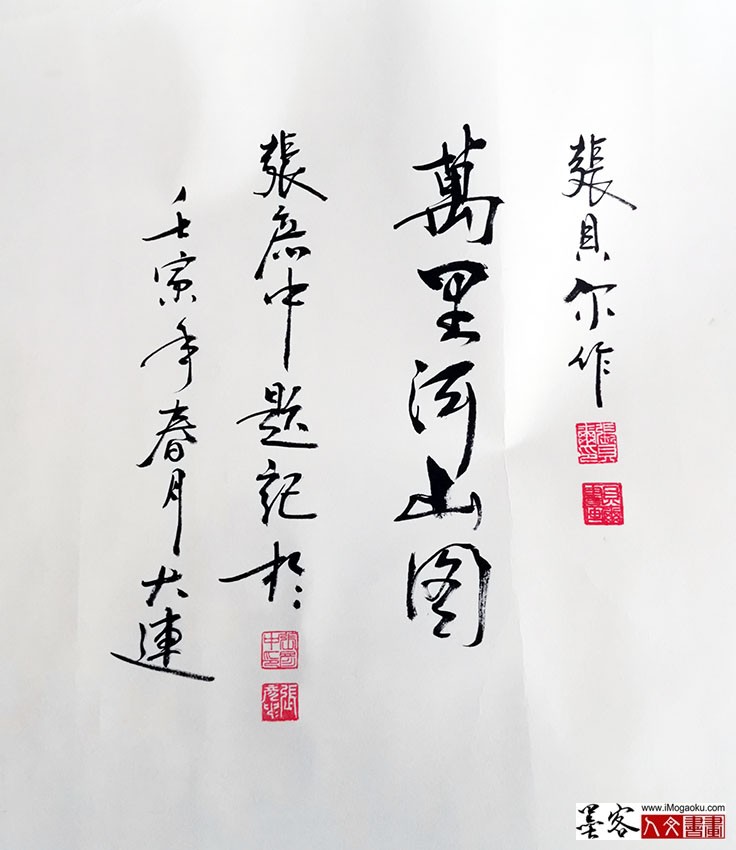 張貝尔作
萬里河山图
張彦中题記於
壬寅年春月大連
墨客
www.iMogaoku.com
人文書畫